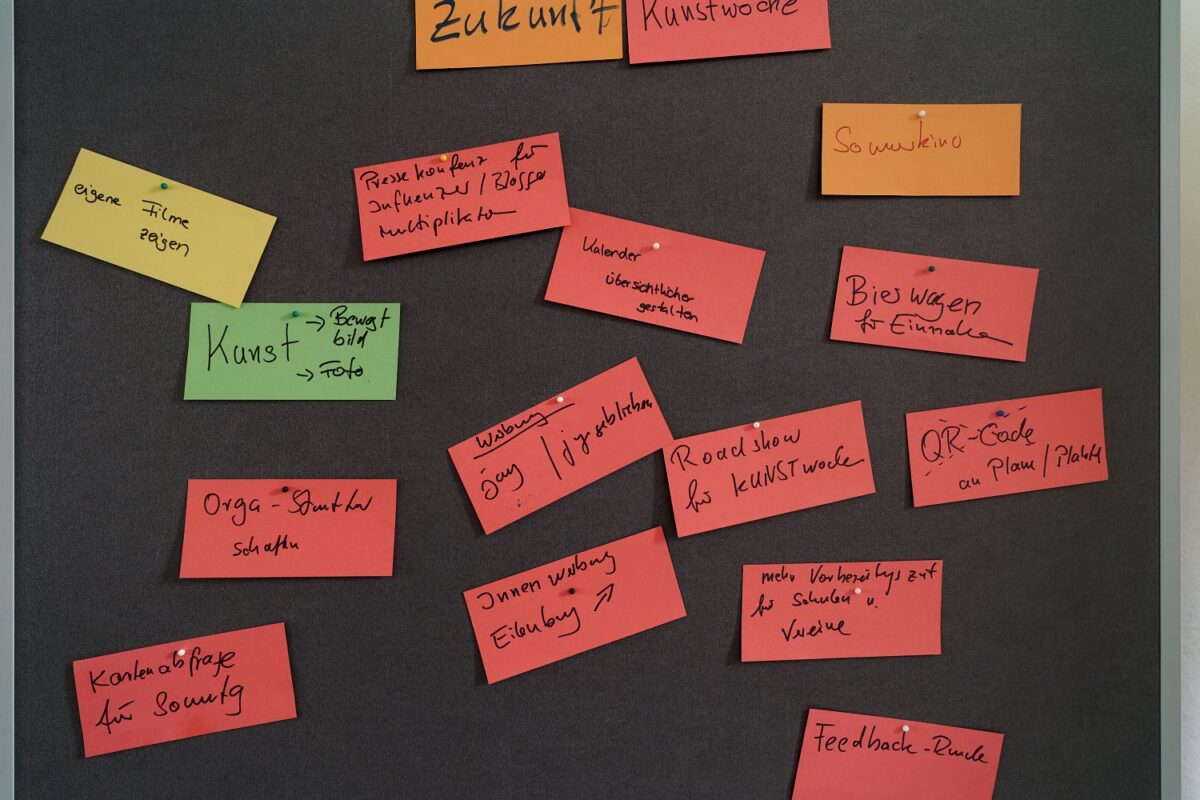 Zukunft
Kunstwoche
Sommerkino
eigene Filme
zeigen
Pressekonferenz für
Influenzer / Blogger
Multiplikator
Kalender
übersichtlicher
gestalten
Bierwagen
für Einnahmen
Kunst
→ Bewegt
bild
→ Foto
Werbung
jung / junggeblieben
Roadshow
für KUNSTwoche
QR-Code
an Plane / Plakat
Orga - Struktur
schaffen
Innenwerbung
Eilenburg ↗
mehr Vorbereitungszeit
für Schulen u.
Vereine
Kartenabfrage
für Sonntag
Feedback-Runde